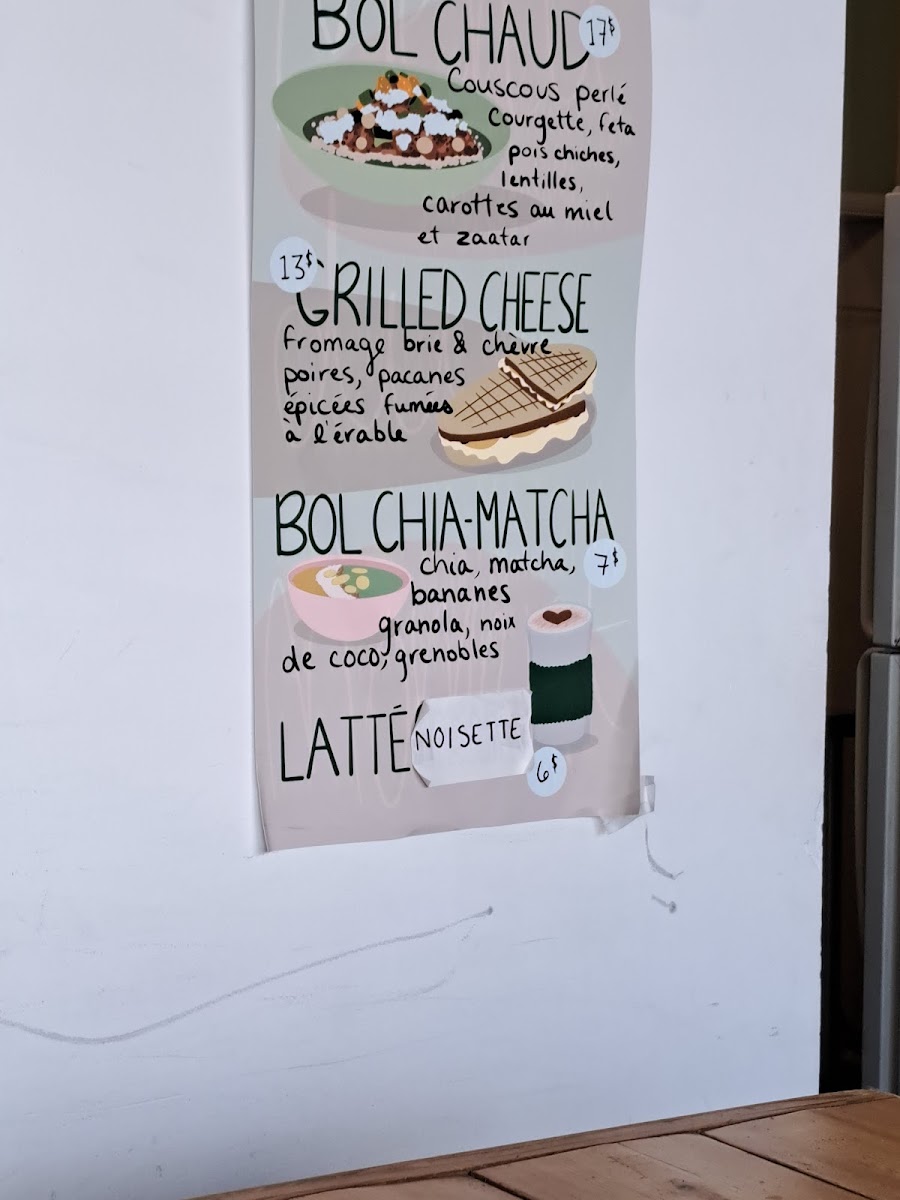 BOL CHAUD
17$
Couscous perlé
courgette, feta
pois chiches,
lentilles,
carottes au miel
et zaatar
13$
GRILLED CHEESE
fromage brie & chèvre
poires, pacanes
épicées fumées
à l'érable
BOL CHIA-MATCHA
chia, matcha,
7$
bananes
granola, noix
de coco, grenobles
LATTÉ NOISETTE
6$